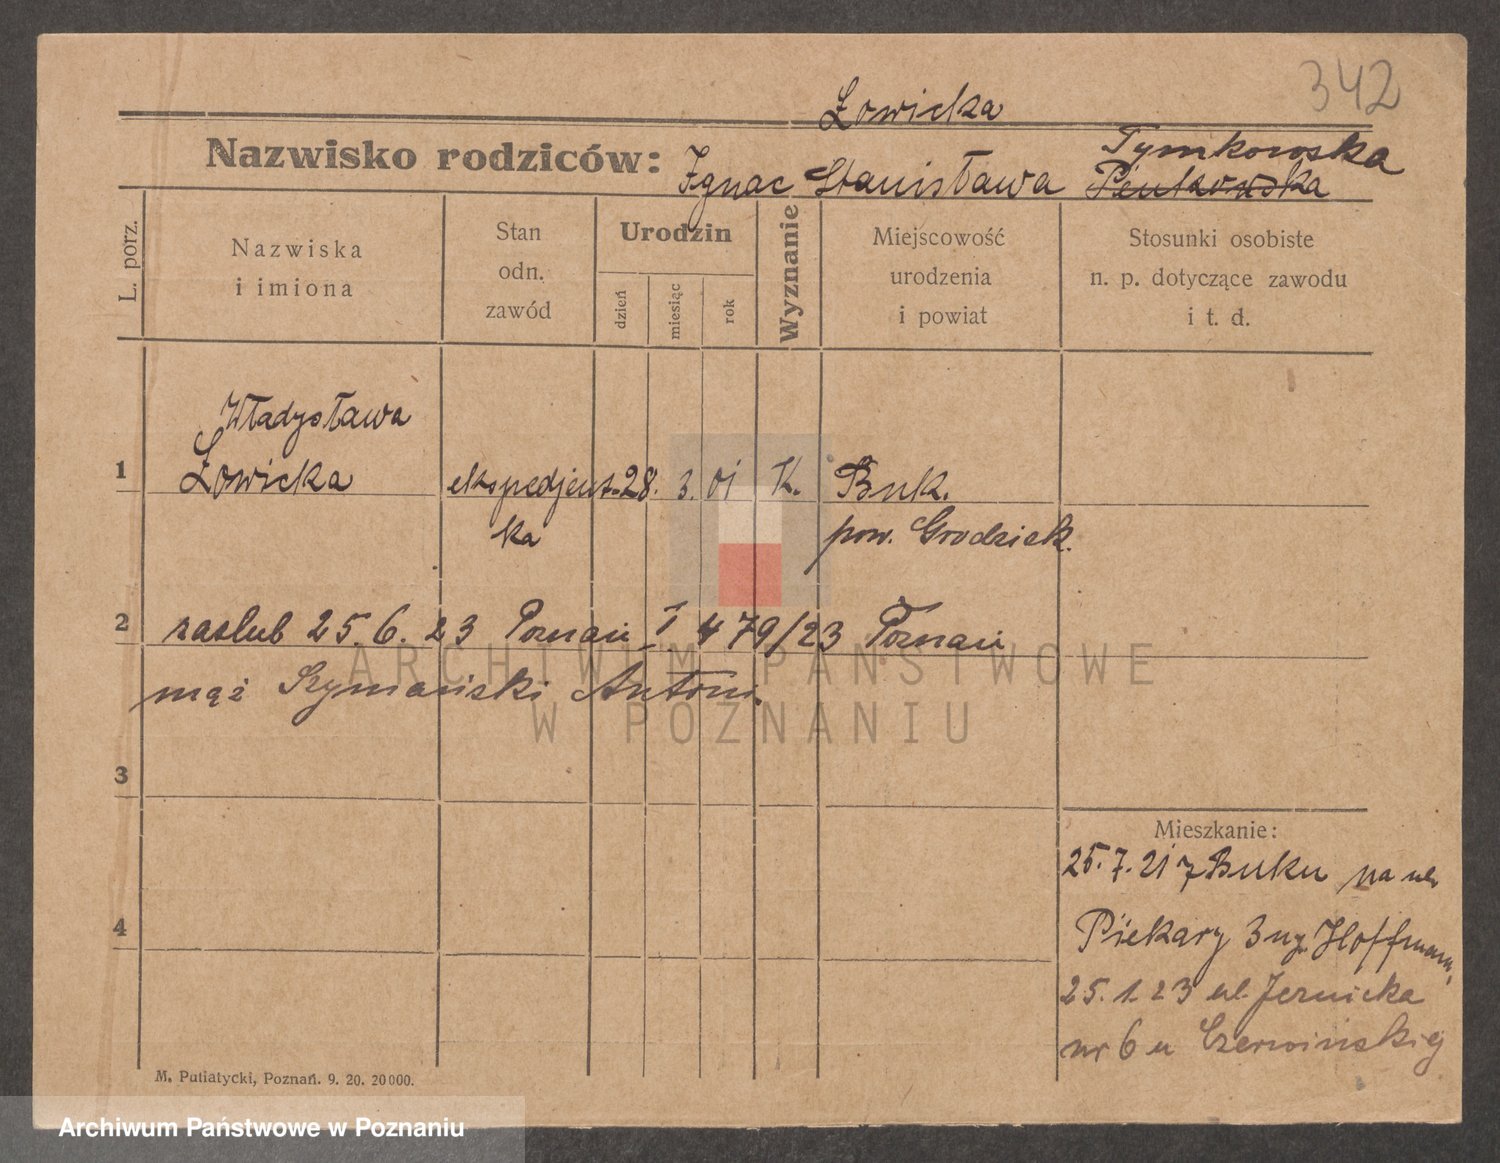 342
Łowicka
Nazwisko rodziców: Ignac Stanisława Tymkowska
L. porz.
Nazwiska i imiona
Stan odn. zawód
Urodzin
dzień
miesiąc
rok
Wyznanie
Miejscowość urodzenia i powiat
Stosunki osobiste n. p. dotyczące zawodu i t. d.
Władysława
1 Łowicka ekspedjent- 28. 3. 01 K. Buk.
ka pow. Grodzisk.
2 zaslub 25.6.23 Poznań I 479/23 Poznań
mąż Szymański Antoni.
ARCHIWUM PAŃSTWOWE
W POZNANIU
3
4
Mieszkanie:
25.7.21 z Buku na ul.
Piekary 3 Hoffmann,
25.1.23 ul. Jeznicka
nr 6 u Czerwińskiej
M. Putiatycki, Poznań. 9. 20. 20000.
Archiwum Państwowe w Poznaniu